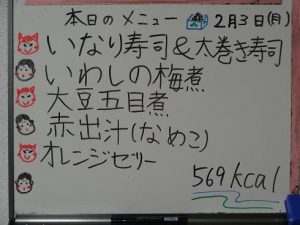 本日のメニュー 2月3日(月)
いなり寿司&太巻き寿司
いわしの梅煮
大豆五目煮
赤出汁(なめこ)
オレンジゼリー
569kcal